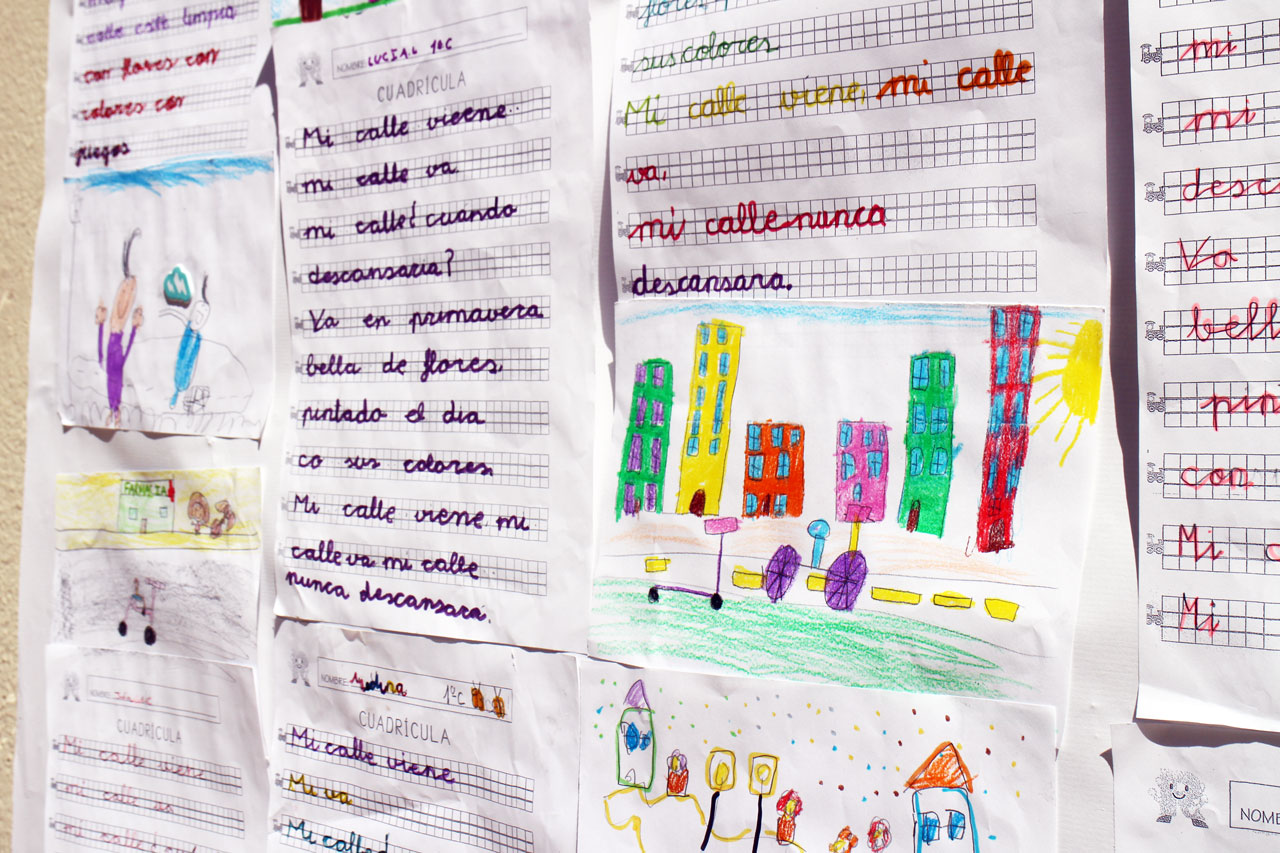 calle calle limpia
con flores con
colores con
juegos
FARMACIA
NOMBRE:
CUADRÍCULA
Mi calle viene
mi calle
NOMBRE: LUCIA.L 1ºC
CUADRÍCULA
Mi calle vieene.
mi calle va
mi calle¿ cuando
descansaria?
Va en primavera
bella de flores,
pintado el dia
co sus colores.
Mi calle viene mi
calle va mi calle
nunca descansara.
NOMBRE: 1ºC
CUADRÍCULA
Mi calle viene
Mi va
Mi calle¿
flores,
sus colores
Mi calle viene, mi calle
va,
mi calle nunca
descansara.
mi
mi
desc
Va
bell
pin
con
Mi c
Mi
NOM